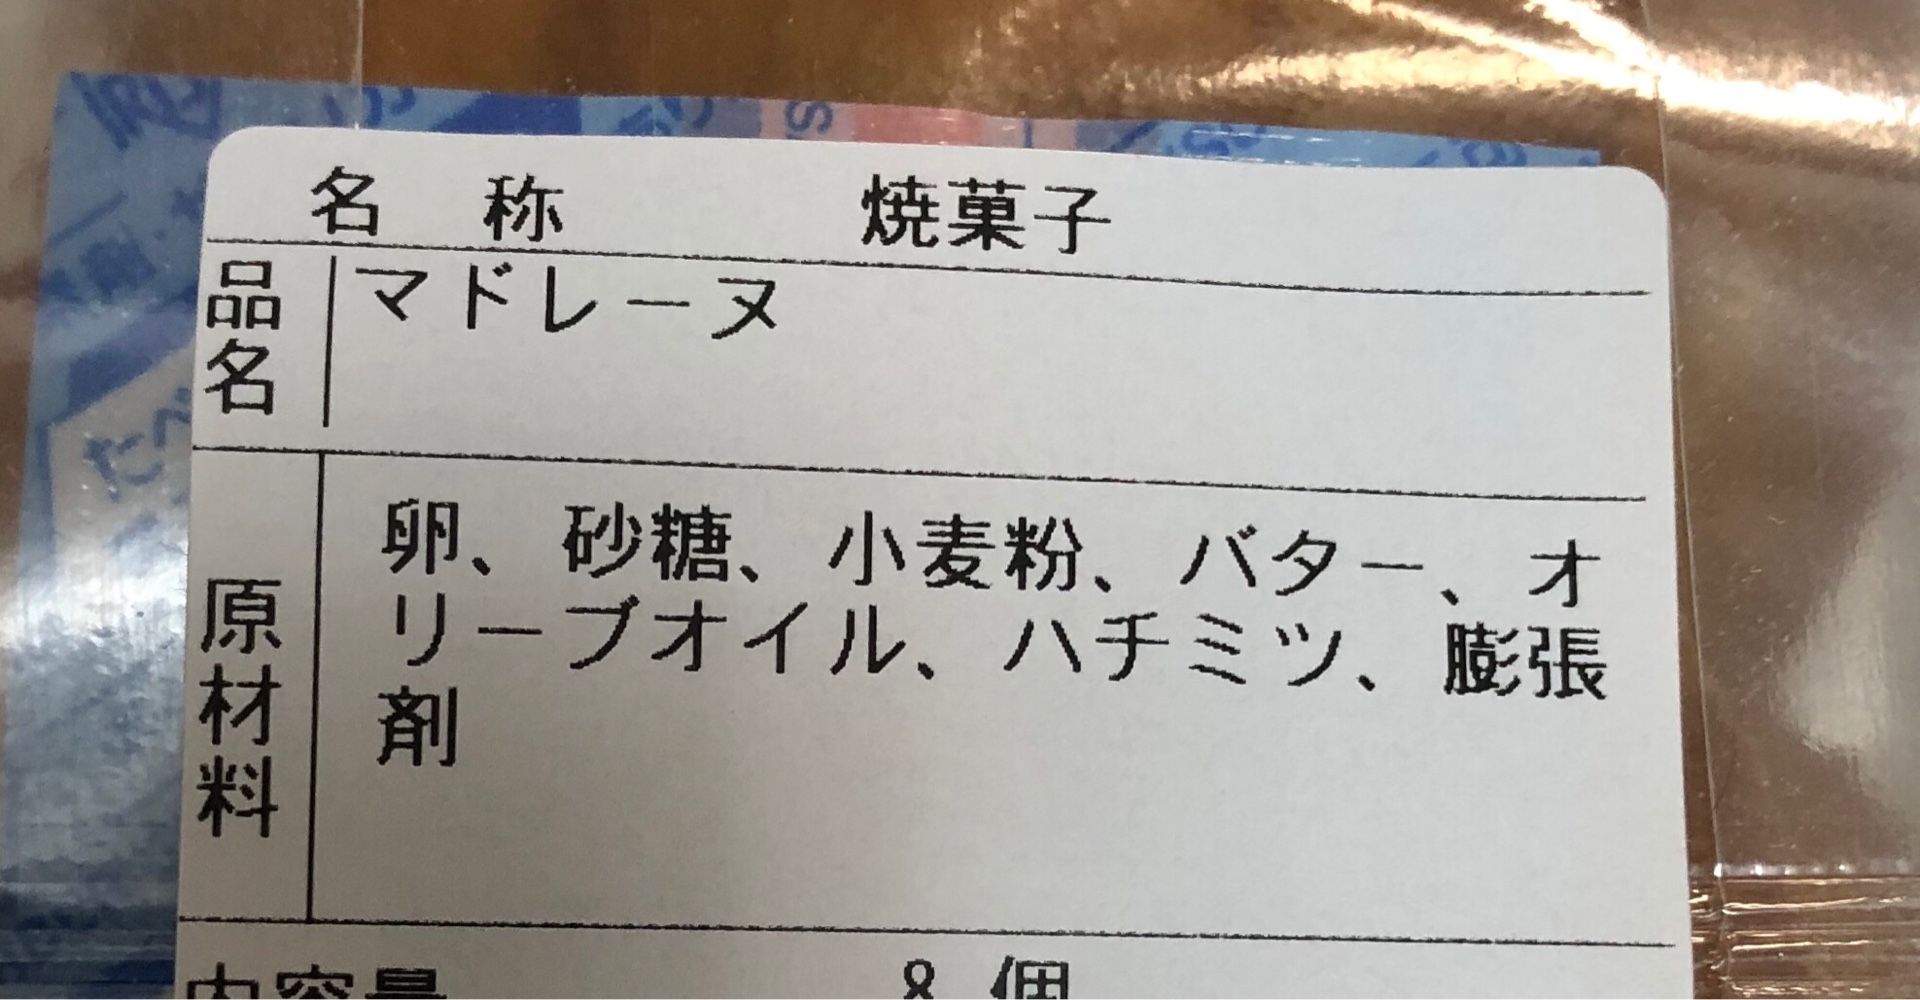 名 称 焼菓子
品名 マドレーヌ
原材料
卵、砂糖、小麦粉、バター、オ
リーブオイル、ハチミツ、膨張
剤
内容量 8個
たべ